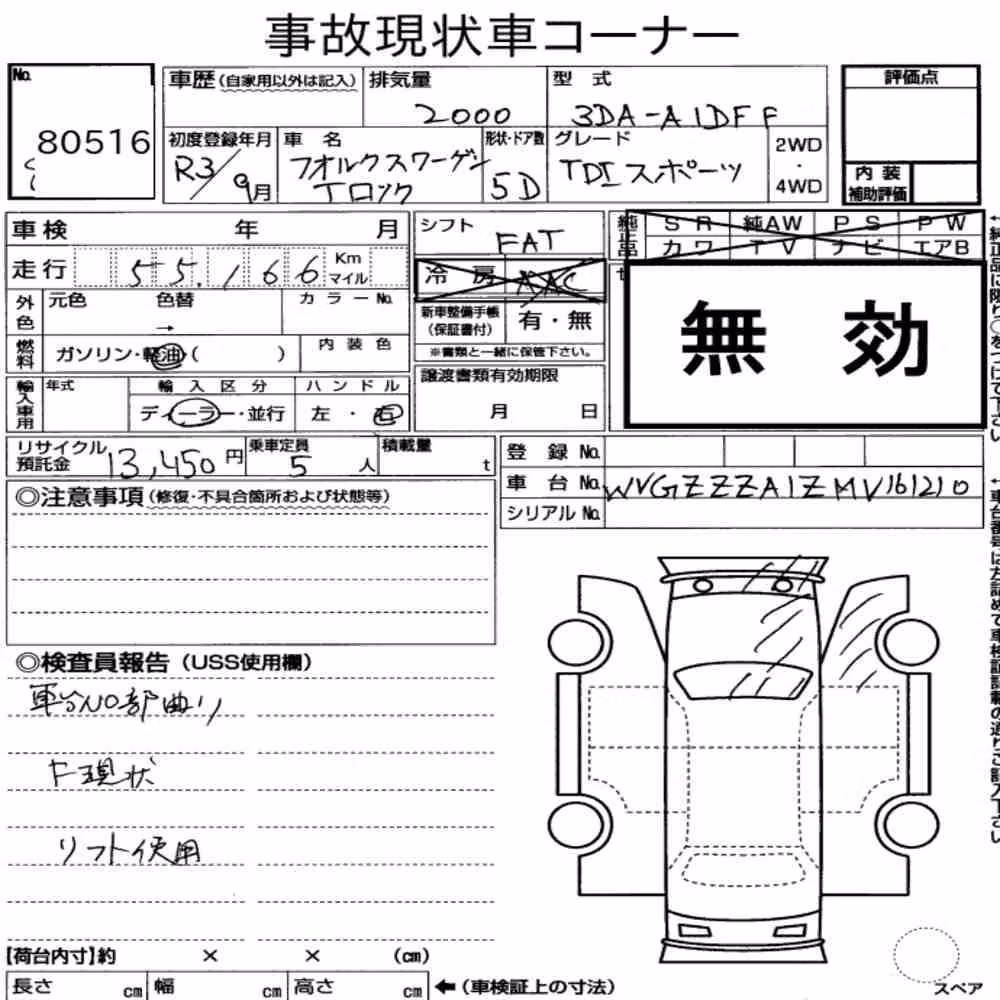 事故現状車コーナー
No. 80516
車歴(自家用以外は記入)
排気量 2000
型式 3DA-A1DFF
評価点
初度登録年月 R3/9月
車名 フォルクスワーゲン Tロック
形状・ドア数 5D
グレード TDI スポーツ
2WD・4WD
内装補助評価
車検 年 月
シフト FAT
純正品 SR 純AW PS PW
カワ TV ナビ エアB
走行 55,166 Km マイル
冷房 AAC
無効
外色 元色 色替 → カラーNo.
新車整備手帳(保証書付) 有・無
※書類と一緒に保管下さい。
燃料 ガソリン・軽油( ) 内装色
譲渡書類有効期限 月 日
輸入車用 年式 輸入区分 ハンドル
ディーラー・並行 左・右
リサイクル預託金 13,450円
乗車定員 5人
積載量 t
登録No.
車台No. WVGZZZA1ZMV161210
シリアルNo.
◎注意事項(修復・不具合箇所および状態等)
◎検査員報告(USS使用欄)
車台NO部曲り
F現状
リフト使用
【荷台内寸】約 × × (cm)
長さ cm 幅 cm 高さ cm ←(車検証上の寸法)
スペア
↑純正品に限り○をつけて下さい
↑車台番号は左詰めで車検証記載の通りご記入下さい